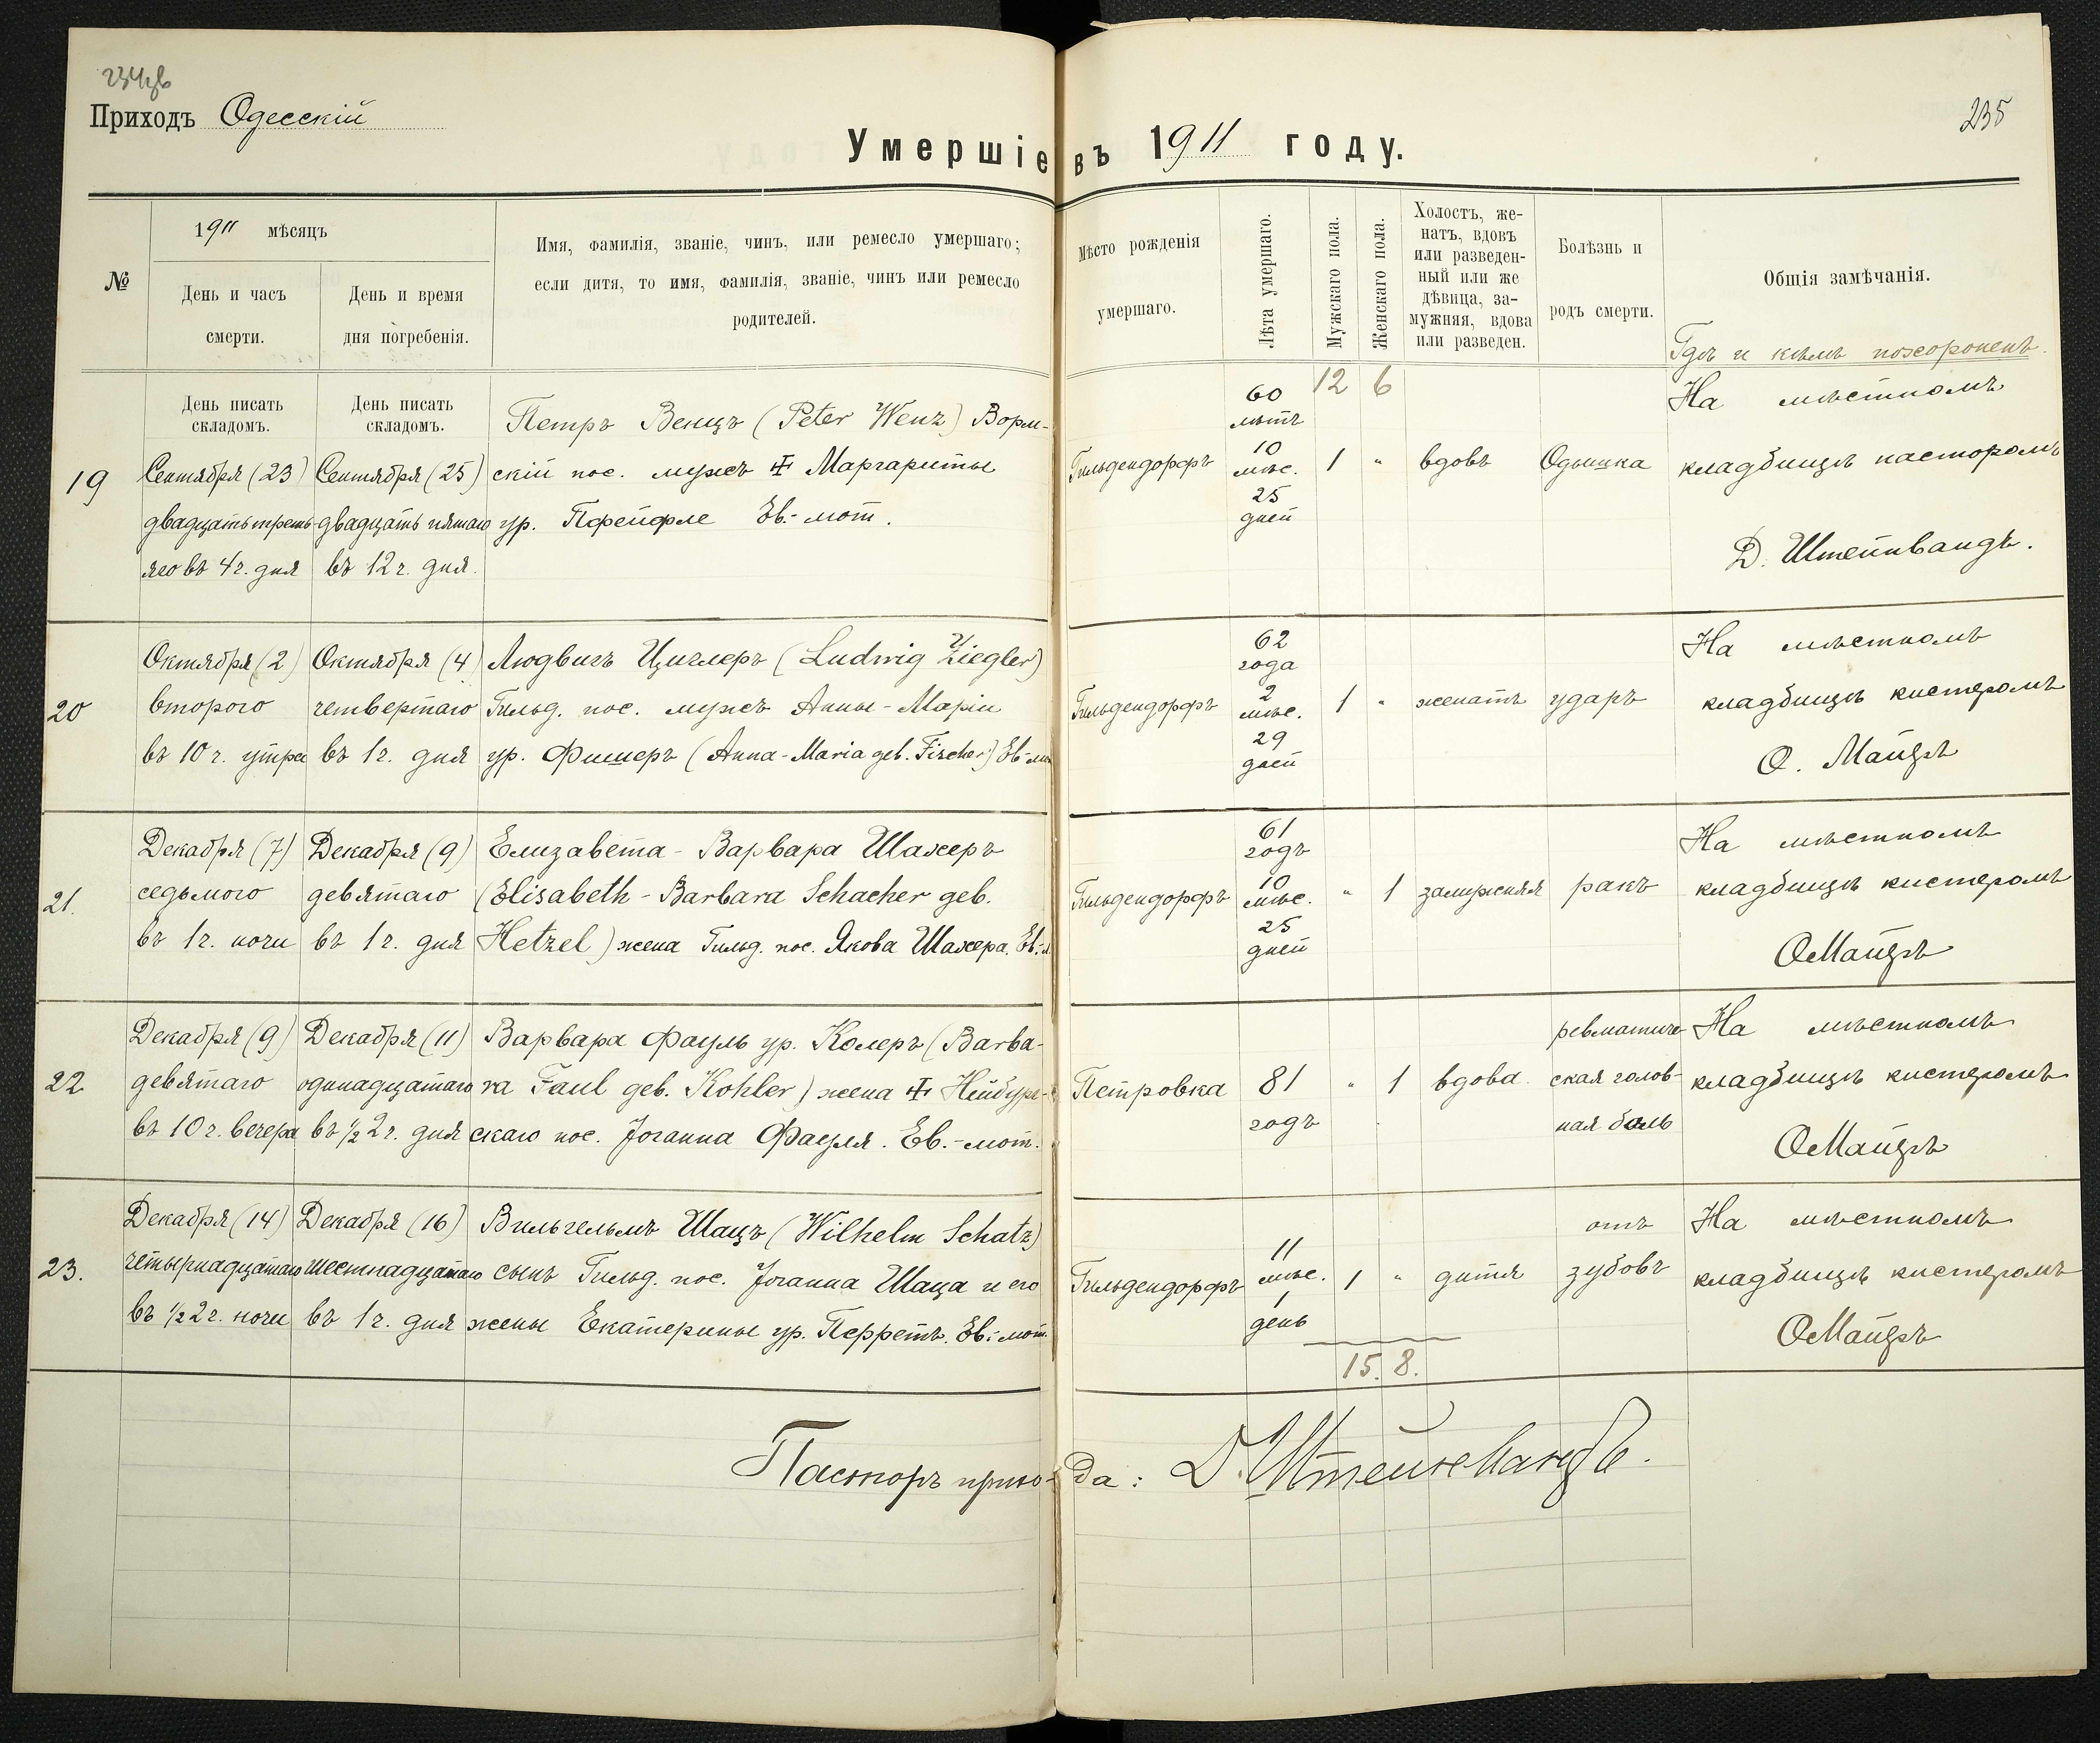 Приходъ Одесскій
235
Умершіе въ 1911 году.
№
1911 мѣсяцъ
День и часъ
смерти.
День и время
дня погребенія.
Имя, фамилія, званіе, чинъ, или ремесло умершаго;
если дитя, то имя, фамилія, званіе, чинъ или ремесло
родителей.
Мѣсто рожденія
умершаго.
Лѣта умершаго.
Мужскаго пола.
Женскаго пола.
Холостъ, же-
натъ, вдовъ
или разведен-
ный или же
дѣвица, за-
мужняя, вдова
или разведен.
Болѣзнь и
родъ смерти.
Общія замѣчанія.
Гдѣ и кѣмъ похороненъ.
День писать
складомъ.
День писать
складомъ.
12 6
19
Сентября (23)
двадцать треть-
яго въ 4 ч. дня
Сентября (25)
двадцать пятаго
въ 12 ч. дня.
Петръ Венцъ (Peter Wenz) Ворм-
скій пос. мужъ Маргариты
ур. Пфейфле Ев.-лют.
Гильдендорфъ
60
лѣтъ
10
мѣс.
25
дней
1 "
вдовъ
Одышка
На мѣстномъ
кладбищѣ пасторомъ
Д. Штейнвандъ.
20
Октября (2)
второго
въ 10 ч. утра
Октября (4)
четвертаго
въ 1 ч. дня
Людвигъ Циглеръ (Ludwig Ziegler)
Гильд. пос. мужъ Анны-Маріи
ур. Фишеръ (Anna-Maria geb. Fischer) Ев.-лют
Гильдендорфъ
62
года
2
мѣс.
29
дней
1 "
женатъ
ударъ
На мѣстномъ
кладбищѣ кистеромъ
О. Майеръ
21.
Декабря (7)
седьмого
въ 1 ч. ночи
Декабря (9)
девятаго
въ 1 ч. дня
Елизавета-Варвара Шахеръ
(Elisabeth-Barbara Schacher geb.
Hetzel) жена Гильд. пос. Якова Шахера. Ев.-л.
Гильдендорфъ
61
годъ
10
мѣс.
25
дней
" 1
замужняя
ракъ
На мѣстномъ
кладбищѣ кистеромъ
ОМайеръ
22
Декабря (9)
девятаго
въ 10 ч. вечера
Декабря (11)
одинадцатаго
въ ½ 2 ч. дня
Варвара Фауль ур. Колеръ (Barba-
ra Faul geb. Kohler) жена Нейбург-
скаго пос. Іоганна Фауля. Ев.-лют.
Петровка
81
годъ
" 1
вдова
ревматиче-
ская голов-
ная боль
На мѣстномъ
кладбищѣ кистеромъ
ОМайеръ
23.
Декабря (14)
четырнадцатаго
въ ½ 2 ч. ночи
Декабря (16)
шестнадцатаго
въ 1 ч. дня
Вильгельмъ Шацъ (Wilhelm Schatz)
сынъ Гильд. пос. Іоганна Шаца и его
жены Екатерины ур. Перретъ. Ев.-лют.
Гильдендорфъ
11
мѣс.
1
день
1 "
дитя
отъ
зубовъ
На мѣстномъ
кладбищѣ кистеромъ
ОМайеръ
15. 8.
Пасторъ прихо-да: Д. Штейнвандъ.